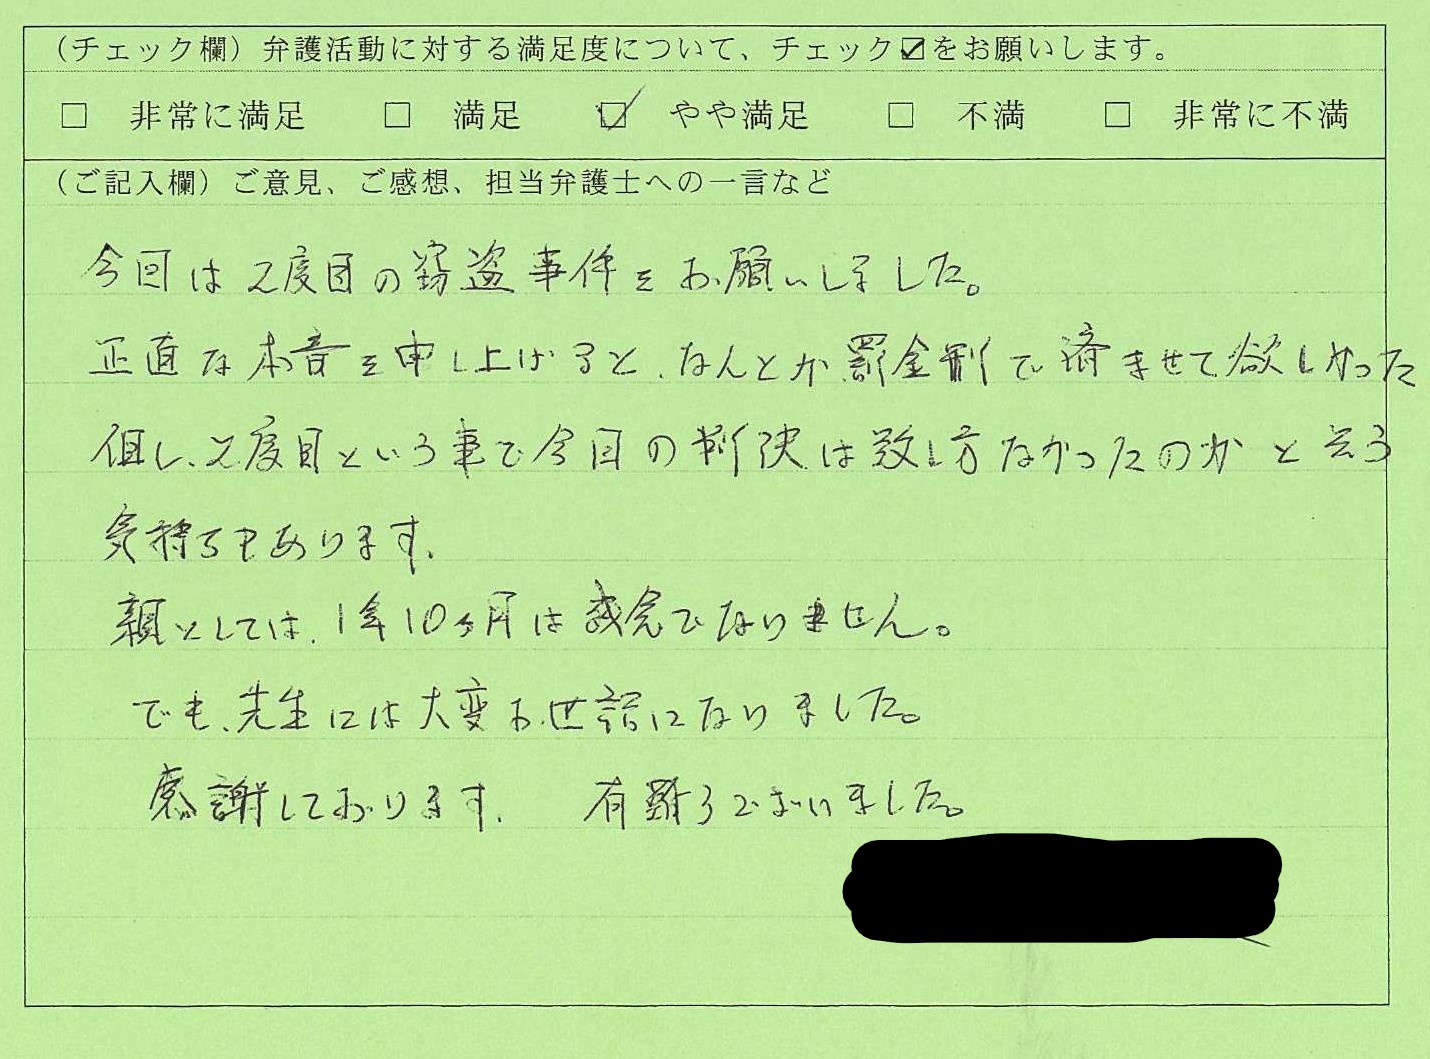 (チェック欄) 弁護活動に対する満足度について、チェック☑をお願いします。
□ 非常に満足 □ 満足 ☑ やや満足 □ 不満 □ 非常に不満
(ご記入欄) ご意見、ご感想、担当弁護士への一言など
今回は2度目の窃盗事件をお願いしました。
正直な本音を申し上げると、なんとか罰金刑で済ませて欲しかった
但し、2度目という事で今回の判決は致し方なかったのかと云う
気持ちもあります。
親としては、1年10ヶ月は残念でなりません。
でも、先生には大変お世話になりました。
感謝しております。 有難うございました。